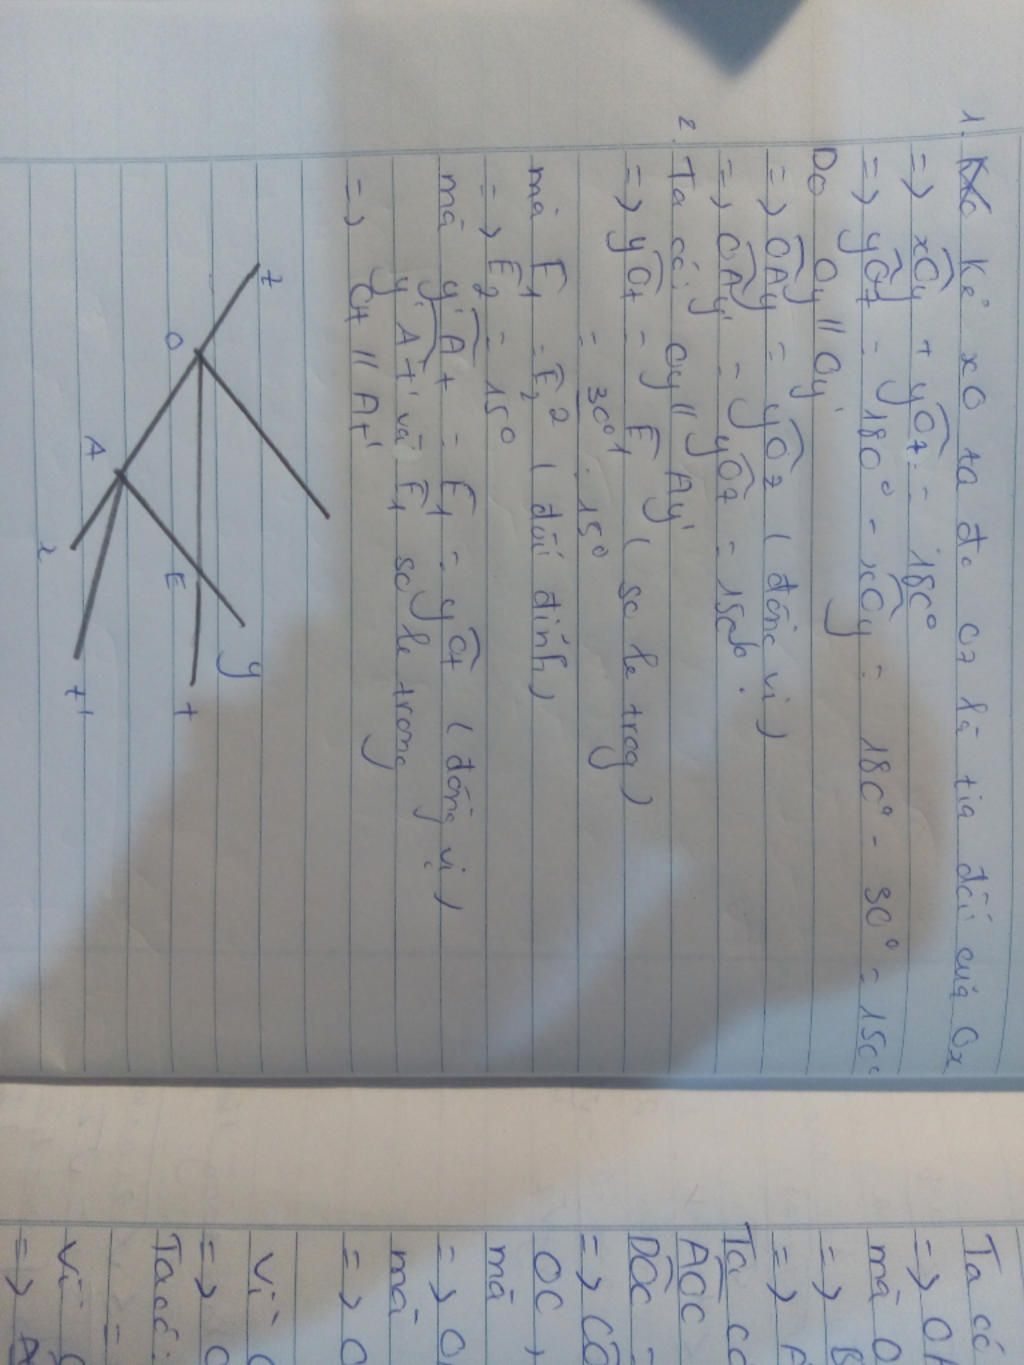 1. Kẻ xO ta đc Oz là tia đối của Ox
=> xOy + yOz = 180°
=> yOz = 180° - xOy = 180° - 30° = 150°
Do Oy // Oy'
=> OAy = yOz (đồng vị)
=> OAy' = yOz = 150°.
2. Ta có Oy // Ay'
=> yOt = E1 (so le trog)
= 30° . 15°
mà E1 = E2 (đối đỉnh)
=> E2 = 15°
mà y'At = E1 = yOt (đồng vị)
y'At' và E1 so le trong
=> Ot // At'
z
O
A
E
y
x
t
t'
Ta có
=> OA
mà O
=> B
=> A
Ta có
AOC
DOC =
=> CO
OC,
mà
=> O
mà
=> O
Vì O
=> O
Ta có:
=
Vì
=> A